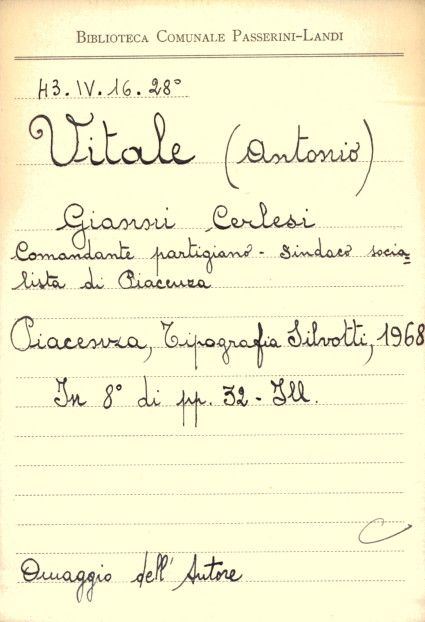 BIBLIOTECA COMUNALE PASSERINI-LANDI
43. IV. 16. 28°
Vitale (Antonio)
Gianni Cerlesi
Comandante partigiano - Sindaco socia=
lista di Piacenza
Piacenza, Tipografia Silvotti, 1968
In 8° di pp. 32 - Ill.
Omaggio dell' Autore